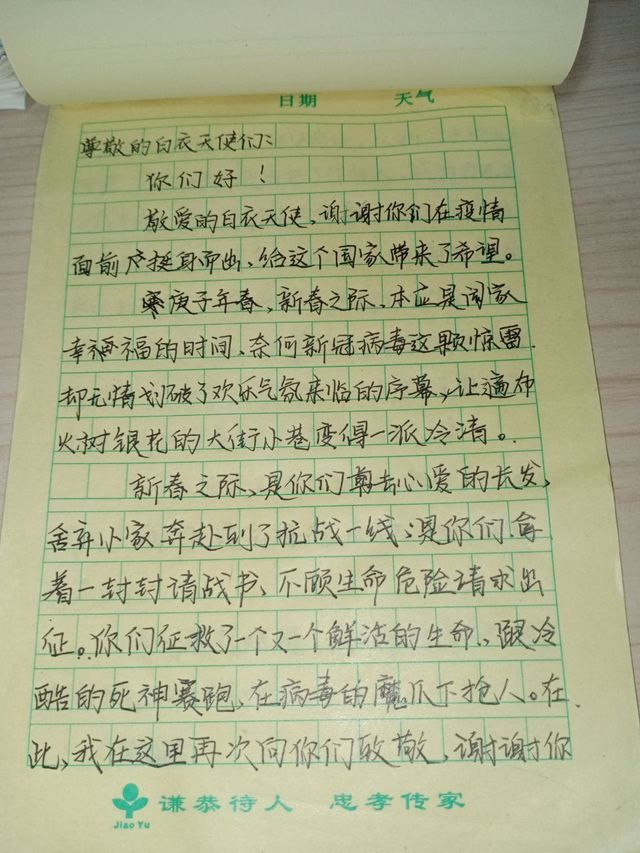 日期 天气
尊敬的白衣天使们:
你们好!
敬爱的白衣天使,谢谢你们在疫情
面前挺身而出,给这个国家带来了希望。
庚子年春,新春之际,本应是阖家
幸福的时间,奈何新冠病毒这颗惊雷
却无情划破了欢乐气氛来临的序幕,让遍布
火树银花的大街小巷变得一派冷清。
新春之际,是你们剪去心爱的长发,
舍弃小家奔赴到了抗战一线;是你们拿
着一封封请战书、不顾生命危险请求出
征。你们拯救了一个又一个鲜活的生命,跟冷
酷的死神赛跑,在病毒的魔爪下抢人。在
此,我在这里再次向你们致敬,谢谢你
Jiao Yu 谦恭待人 忠孝传家